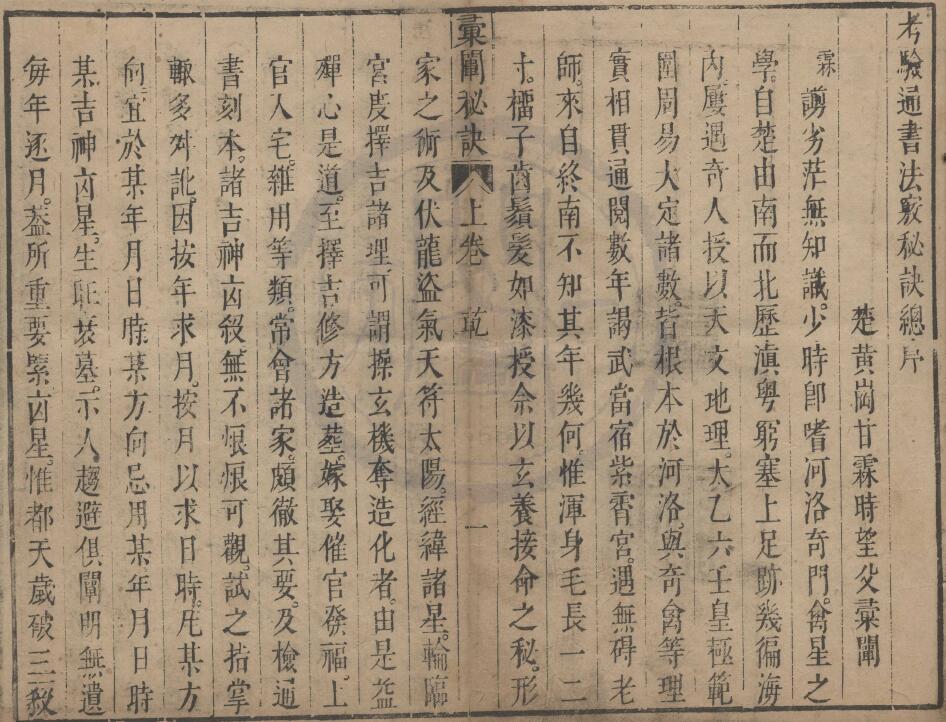 考驗通書法竅秘訣總序
楚黃崗甘霖時望父彚闡
霖謭劣茫無知識。少時卽嗜河洛奇門。禽星之
學。自楚由南而北歷滇粤躬塞上足跡幾徧海
內。屢遇奇人授以天文地理。太乙六壬皇極範
圍周易大定諸數。皆根本於河洛。與奇禽等理
實相貫通閱數年謁武當宿紫霄宮。遇無碍老
師。來自終南不知其年幾何。惟渾身毛長一二
寸。櫺子齒鬚髮如漆授余以玄養接命之秘。形
彚闡秘訣 上卷 乾 一
家之術及伏龍盜氣天符太陽。經緯諸星。輪臨
宮度擇吉諸理。可謂操玄機奪造化者。由是益
殫心是道。至擇吉修方造塟。嫁娶催官發福。上
官入宅。雜用等類。常會諸家。頗徹其要。及檢通
書刻本。諸吉神凶殺。無不恨恨可觀。試之指掌
輙多舛訛。因按年求月。按月以求日時。凡某方
向宜於某年月日時。某方向忌用某年月日時
某吉神凶星。生旺衰墓。示人趨避俱闡明無遺
毎年逐月。葢所重要緊凶星。惟都天歲破三殺